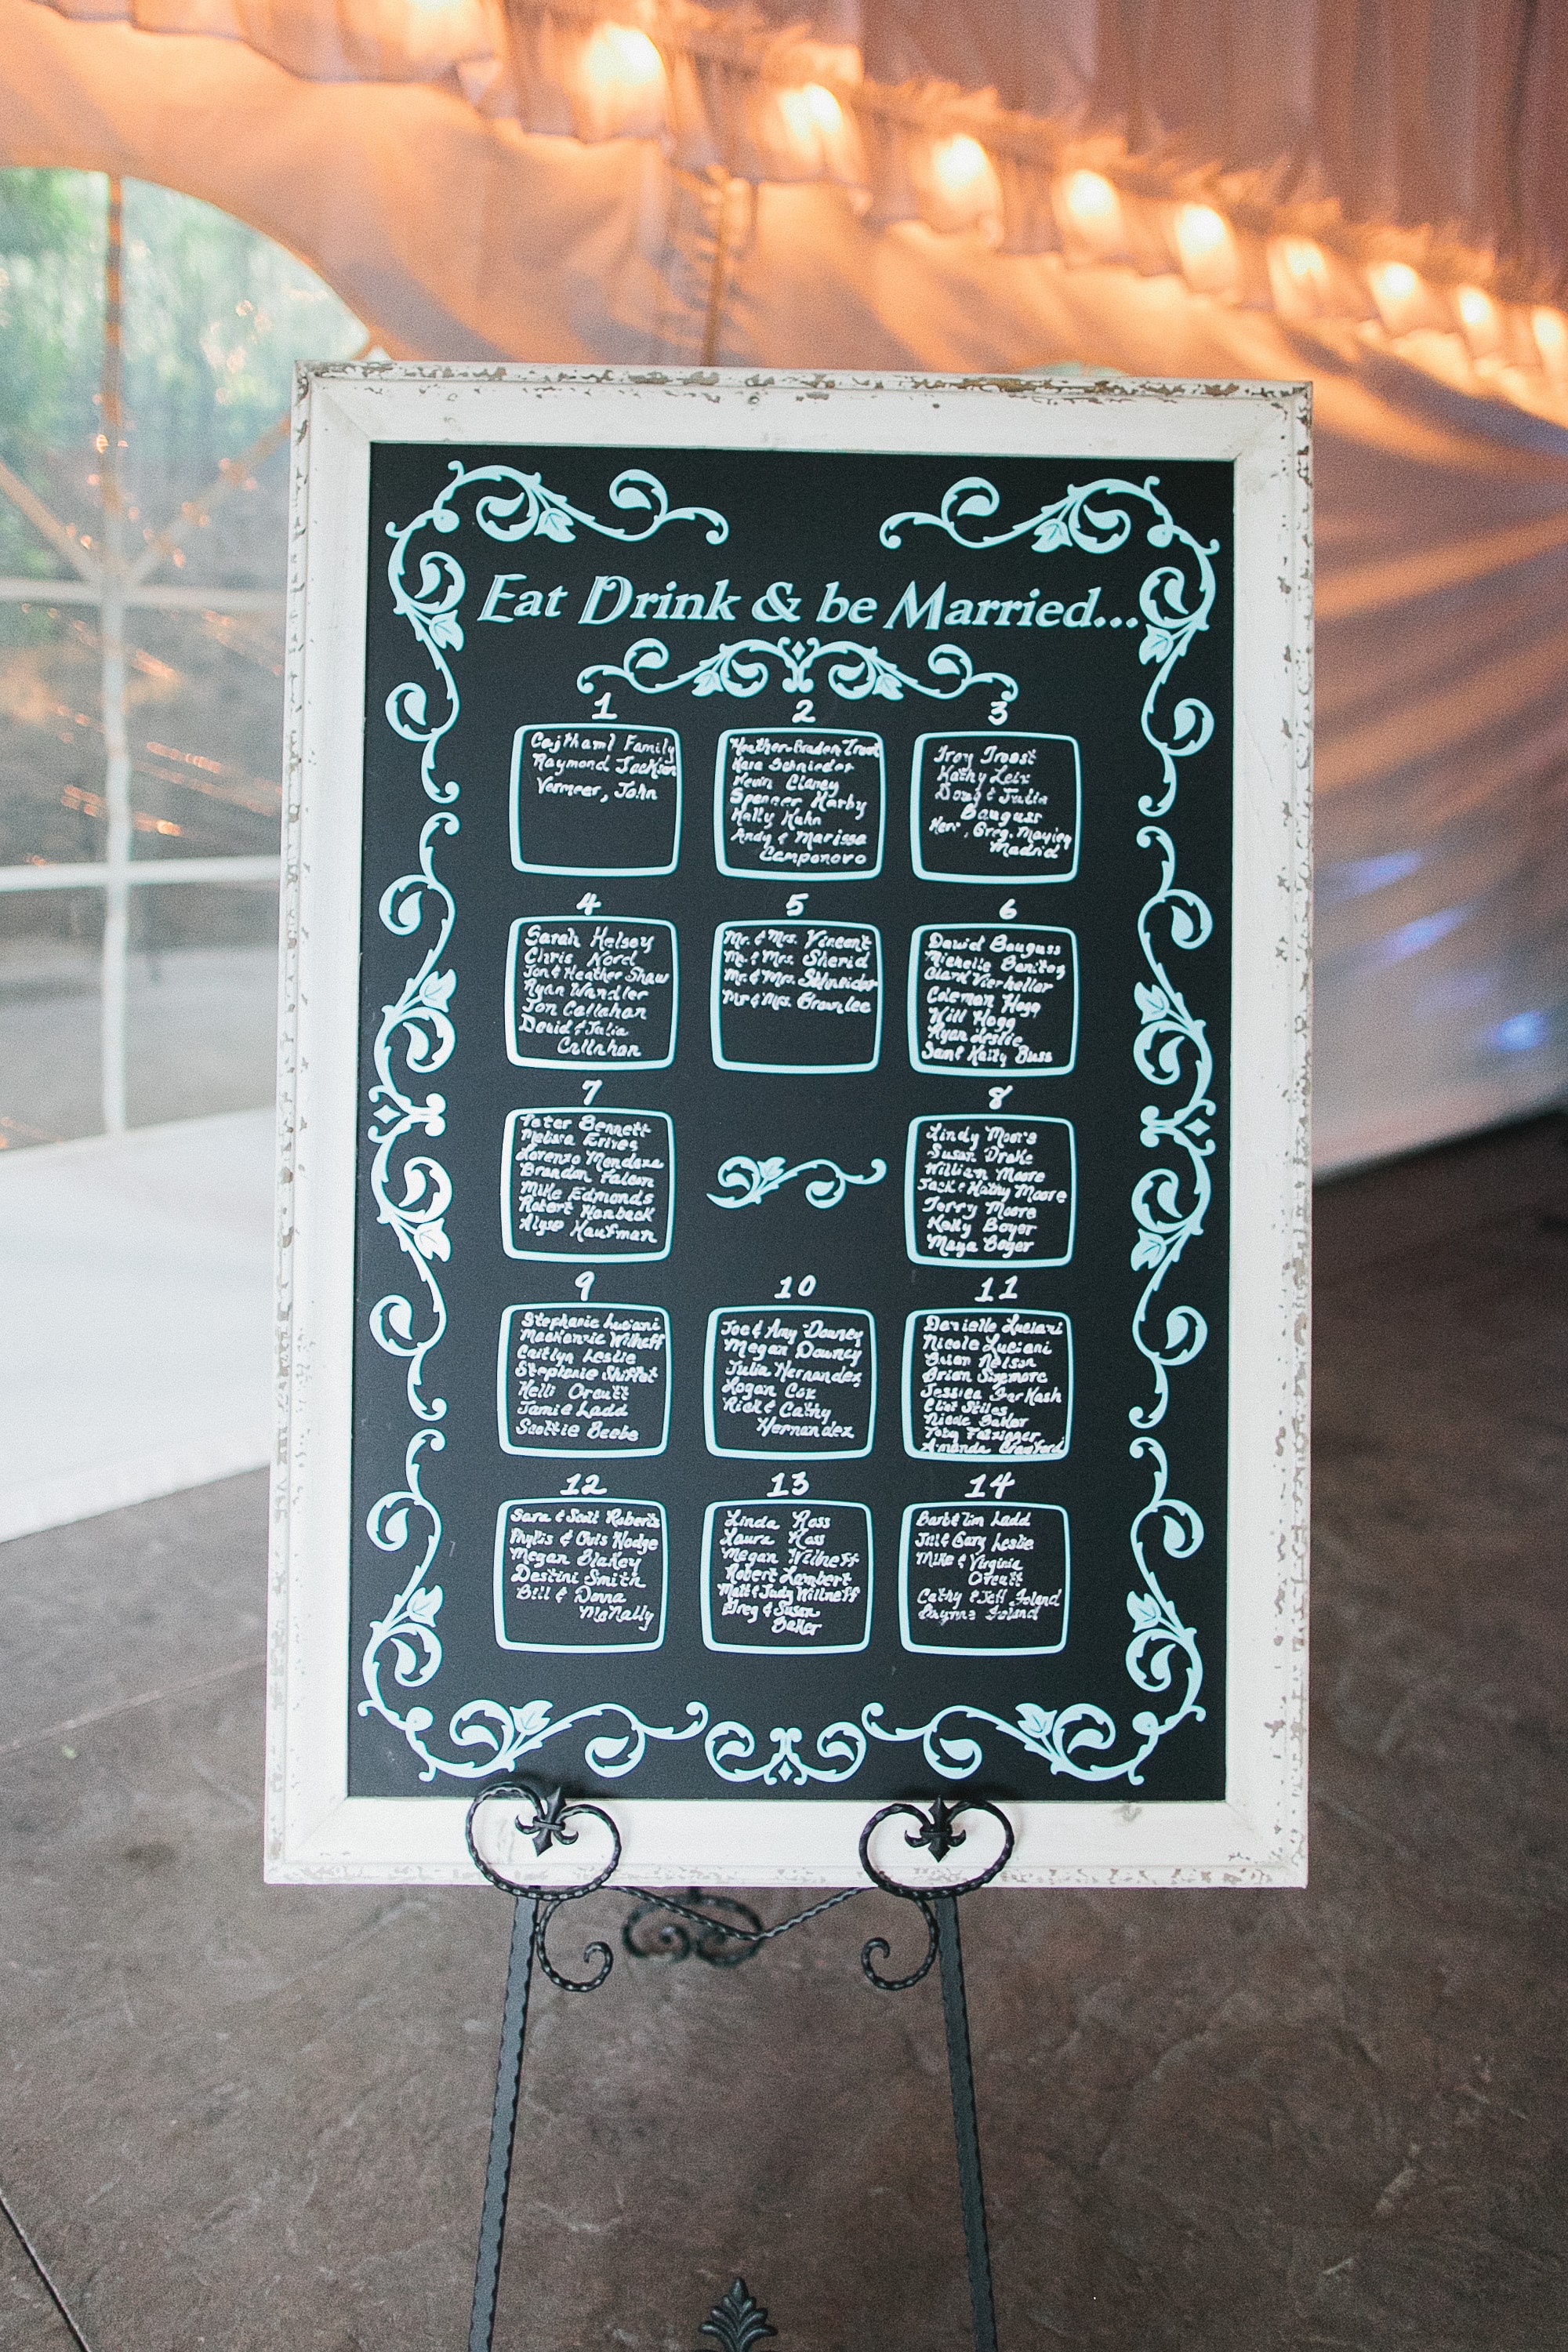 Eat Drink & be Married...
1
Cajthaml Family
Raymond Jackson
Vermeer, John
2
Heather + Braden Troost
Kara Schnieder
Kevin Claney
Spenser Harby
Kally Kuhn
Andy & Marissa
Camponovo
3
Troy Troost
Kathy Leix
Doug & Julia
Bauguss
Greg,
Madrid
4
Sarah Kelsey
Chris Nord
Jon & Heather Shaw
Ryan Wandler
Jon Callahan
David & Julia
Callahan
5
Mr. & Mrs. Vincent
Mr. & Mrs. Sherid
Mr. & Mrs. Schneider
Mr & Mrs. Brownlee
6
David Bauguss
Michelle Benitez
Clark Vierheller
Coleman Hogg
Will Hogg
Ryan Leslie
Sam & Kaity Buss
7
Peter Bennett
Melissa Erives
Lorenzo Mendoza
Brandon Falcon
Mike Edmonds
Robert Hanback
Alyse Kaufman
8
Lindy Moore
Susan Drake
William Moore
Jack & Kathy Moore
Terry Moore
Kelly Boyer
Maya Boyer
9
Stephanie Luciani
MacKenzie Wilneff
Caitlyn Leslie
Stephanie Shifflet
Kelli Orcutt
Jamie Ladd
Scottie Beebe
10
Joe & Amy Downey
Megan Downey
Julia Hernandez
Logan Cox
Rick & Cathy
Hernandez
11
Danielle Luciani
Nicole Luciani
Brian Nelson
Brian Sizemore
Jessica
Clint Stiles
Nicole Baker
Toby Fatzinger
Amanda Crawford
12
Sara & Scott Roberts
Phyllis & Chris Hodge
Megan Blakey
Destini Smith
Bill & Donna
McNally
13
Linda Ross
Laura Ross
Megan Wilneff
Robert Lambert
Matt & Judy Willneff
Greg & Susan
Baker
14
Barb & Tim Ladd
Jill & Gary Leslie
Mike & Virginia
Orcutt
Cathy & Jeff Toland
Toland